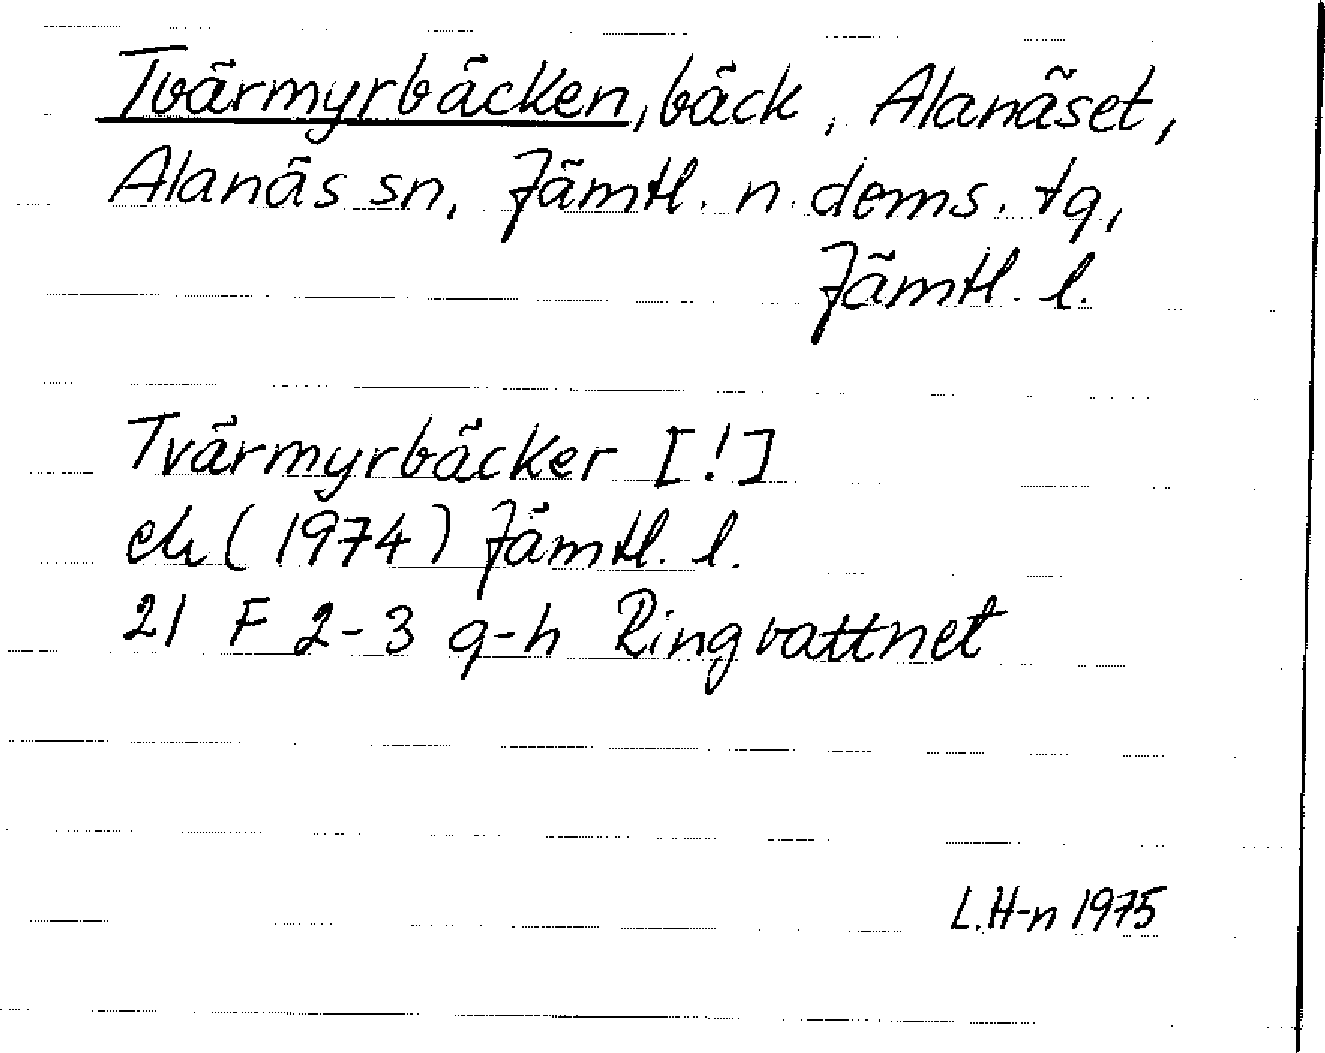 Tvärmyrbäcken, bäck, Alanäset,
Alanäs sn, Jämtl. n. dems. tg,
Jämtl. l.
Tvärmyrbäcker [!]
ek (1974) Jämtl. l.
21 F 2-3 g-h Ringvattnet
L.H-n 1975